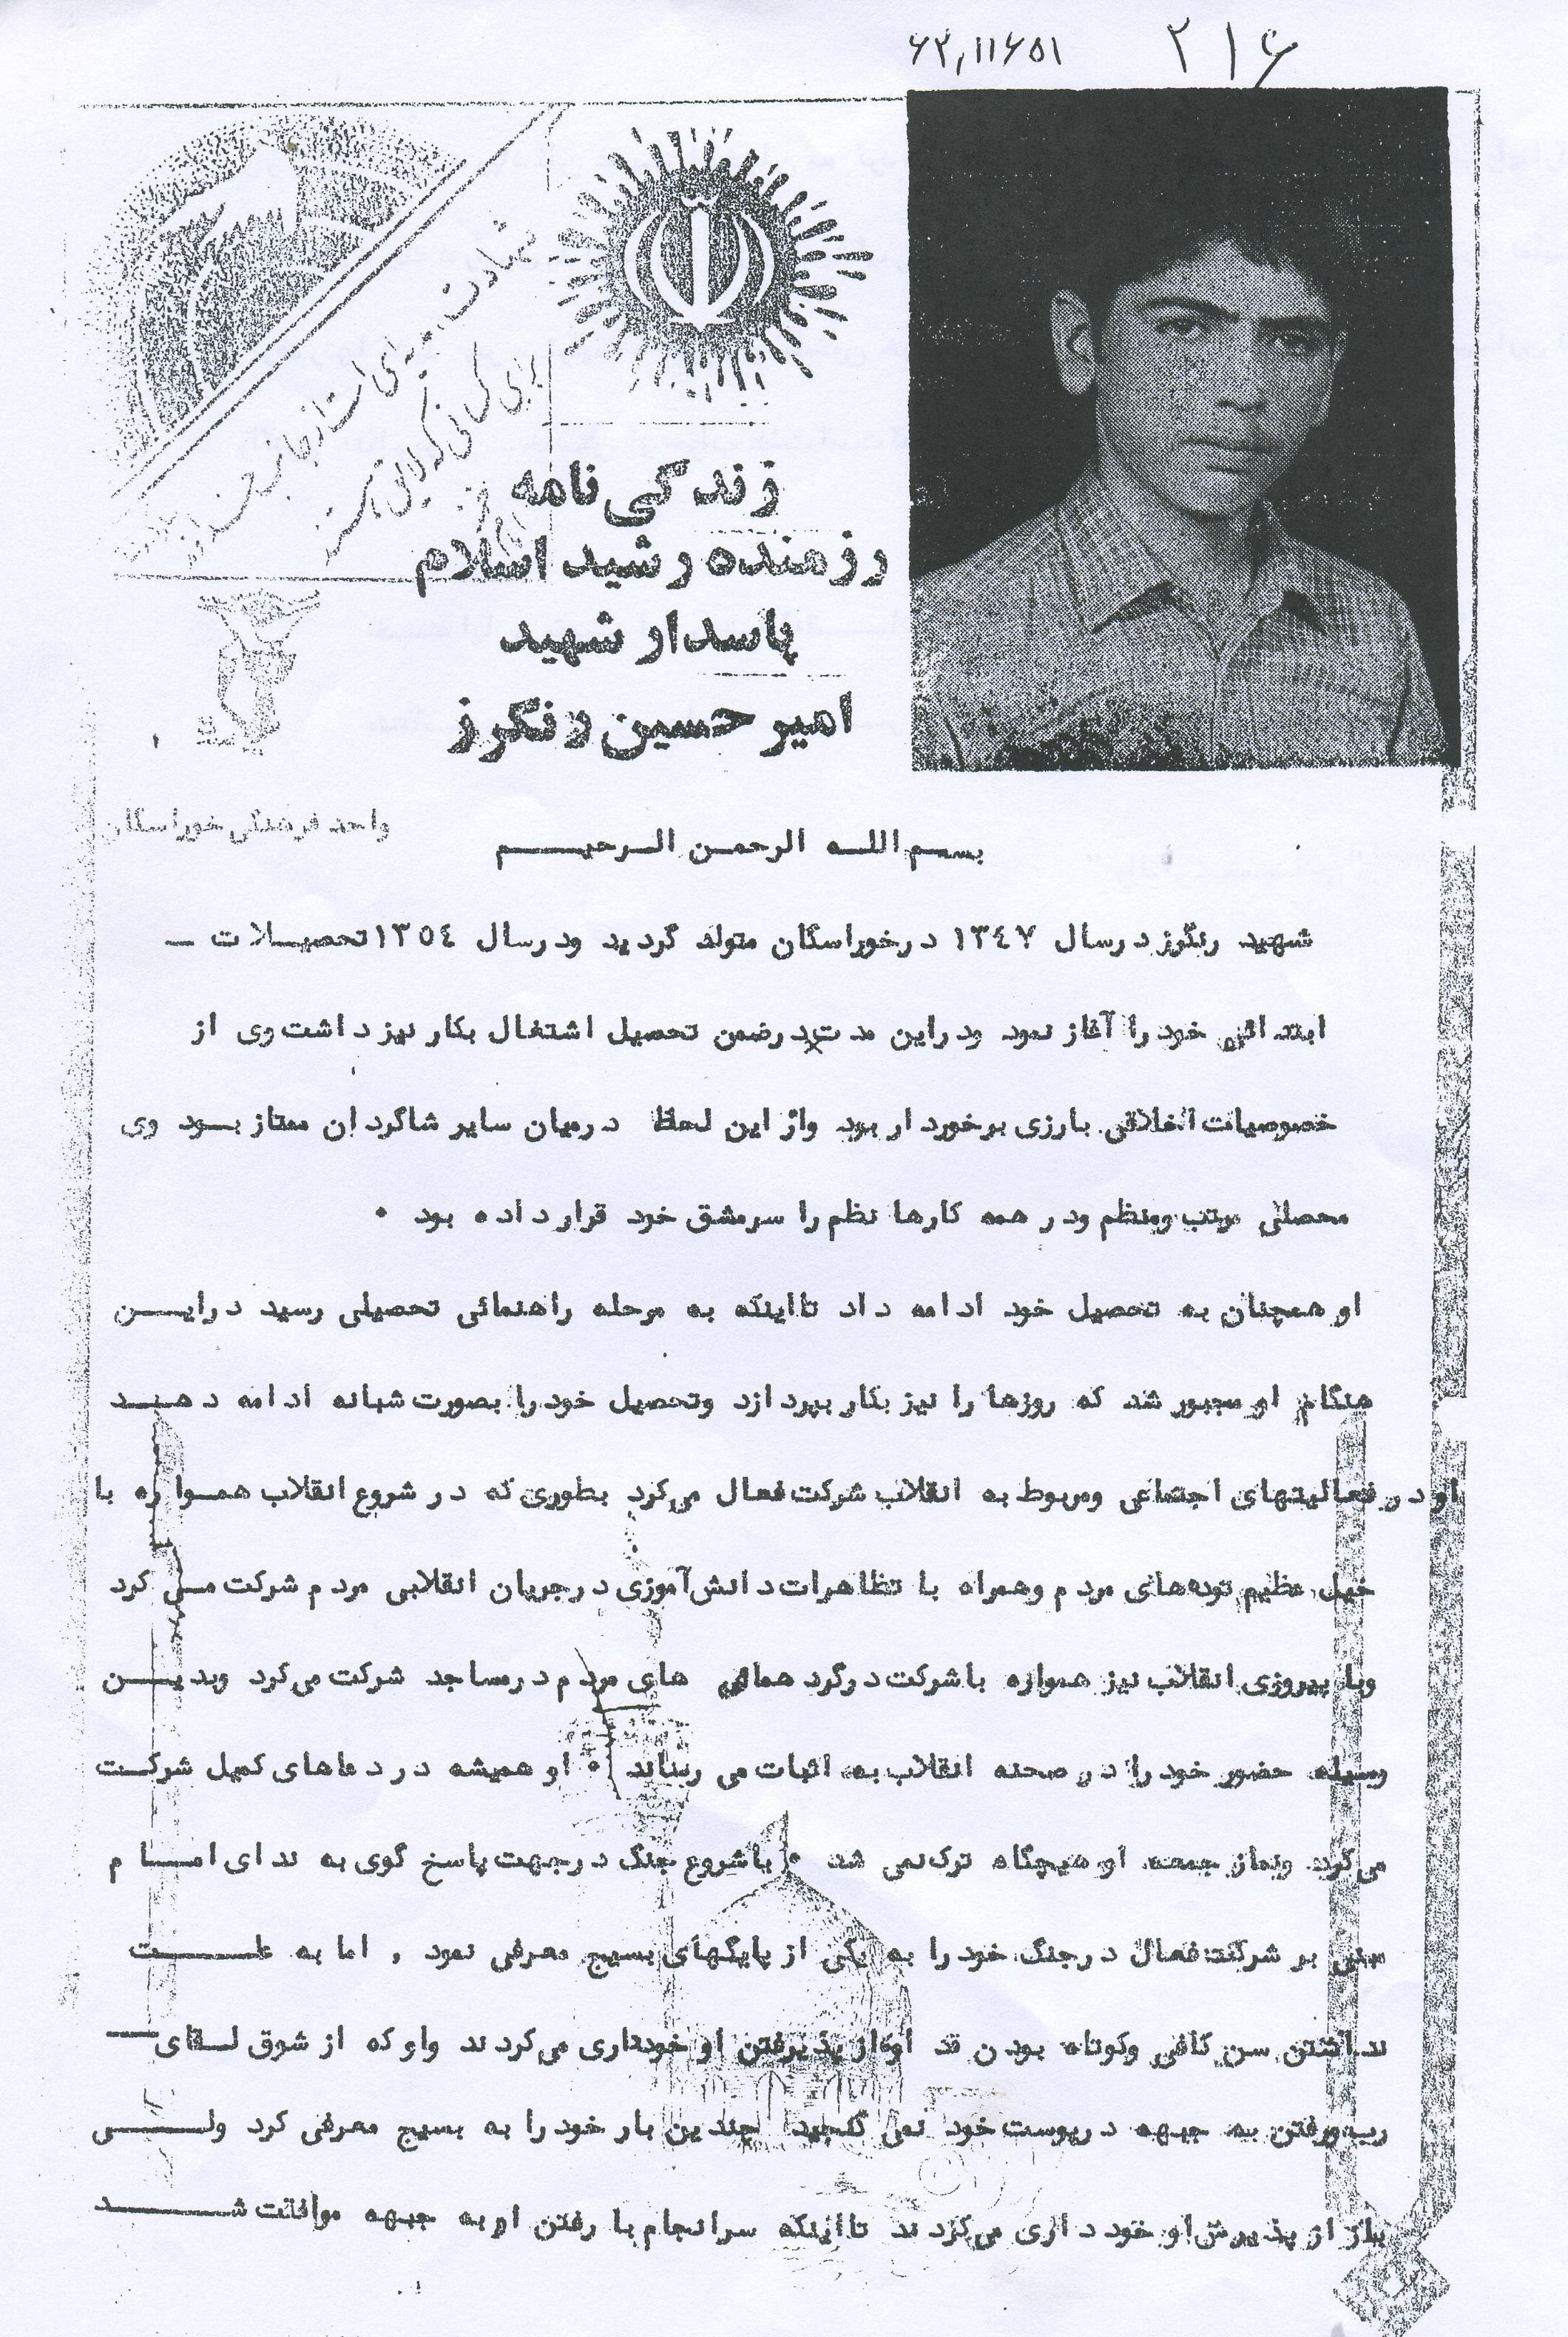 ۶۲,۱۱۶۵۱ ۲۱۶
شهادت هدیه‌ای است از جانب خداوند
برای کسانی که لایق هستند
زندگی نامه
رزمنده رشید اسلام
پاسدار شهید
امیر حسین رنگرز
واحد فرهنگی خوراسگان
بسم الله الرحمن الرحیم
شهید رنگرز درسال ۱۳٤۷ درخوراسگان متولد گردید ودرسال ۱۳٥٤ تحصیلات ـ
ابتدائی خود را آغاز نمود ودراین مدت درضمن تحصیل اشتغال بکار نیز داشت وی از
خصوصیات اخلاقی بارزی برخوردار بود واز این لحاظ درمیان سایر شاگردان ممتاز بود وی
محصلی مرتب ومنظم ودر همه کارها نظم را سرمشق خود قرار داده بود ۰
او همچنان به تحصیل خود ادامه داد تااینکه به مرحله راهنمائی تحصیلی رسید دراین
هنگام او مجبور شد که روزها را نیز بکار بپردازد وتحصیل خود را بصورت شبانه ادامه دهد
او در فعالیتهای اجتماعی ومربوط به انقلاب شرکت فعال می‌کرد بطوری که در شروع انقلاب همواره با
خیل عظیم توده‌های مردم وهمراه با تظاهرات دانش‌آموزی درجریان انقلابی مردم شرکت می کرد
وبا پیروزی انقلاب نیز همواره باشرکت درگرد همائی های مردم درمساجد شرکت می‌کرد وبدین
وسیله حضور خود را در صحنه انقلاب به اثبات می رساند ۰ او همیشه در دعاهای کمیل شرکت
می‌کرد ونماز جمعه او هیچگاه ترک نمی شد ۰ باشروع جنگ درجهت پاسخ گوی به ندای امام
مبنی بر شرکت فعال درجنگ خود را به یکی از پایگهای بسیج معرفی نمود , اما به علت
نداشتن سن کافی وکوتاه بودن قد او از پذیرفتن او خودداری می‌کردند واو که از شوق لقای
رب ورفتن به جبهه درپوست خود نمی گنجید چندین بار خود را به بسیج معرفی کرد ولی
باز از پذیرش او خودداری می‌کردند تااینکه سرانجام با رفتن او به جبهه موافقت شد